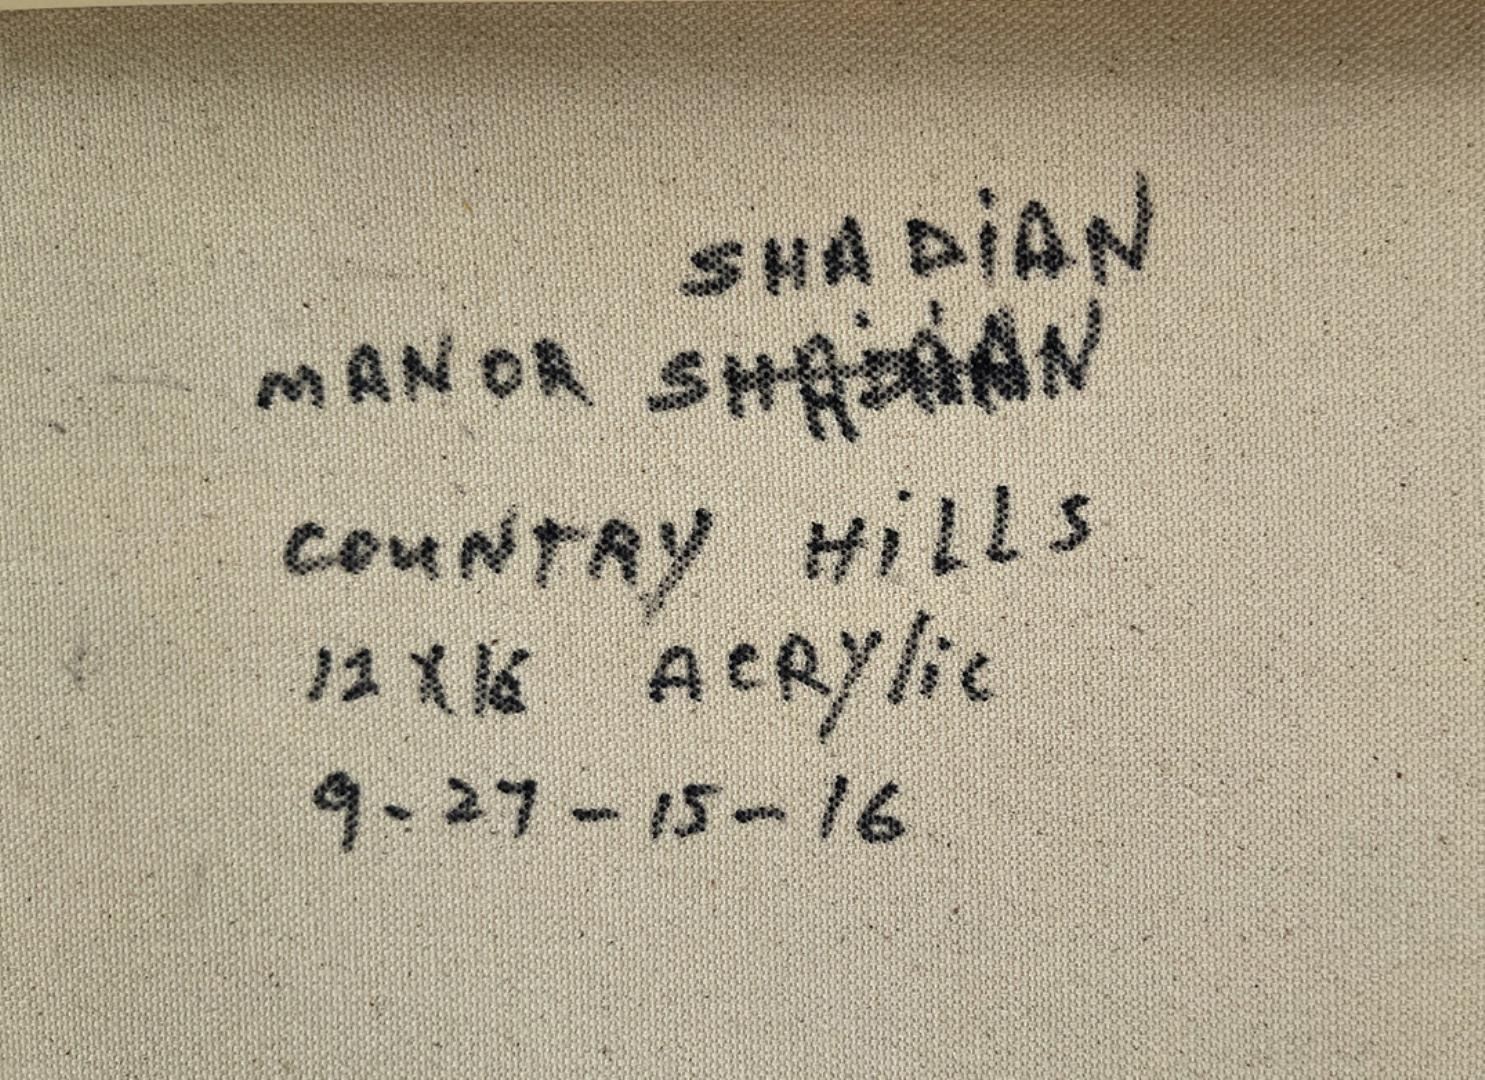 SHADiAN
MANOR
COUNTRY HiLLS
12X16 ACRYlic
9-27-15-16